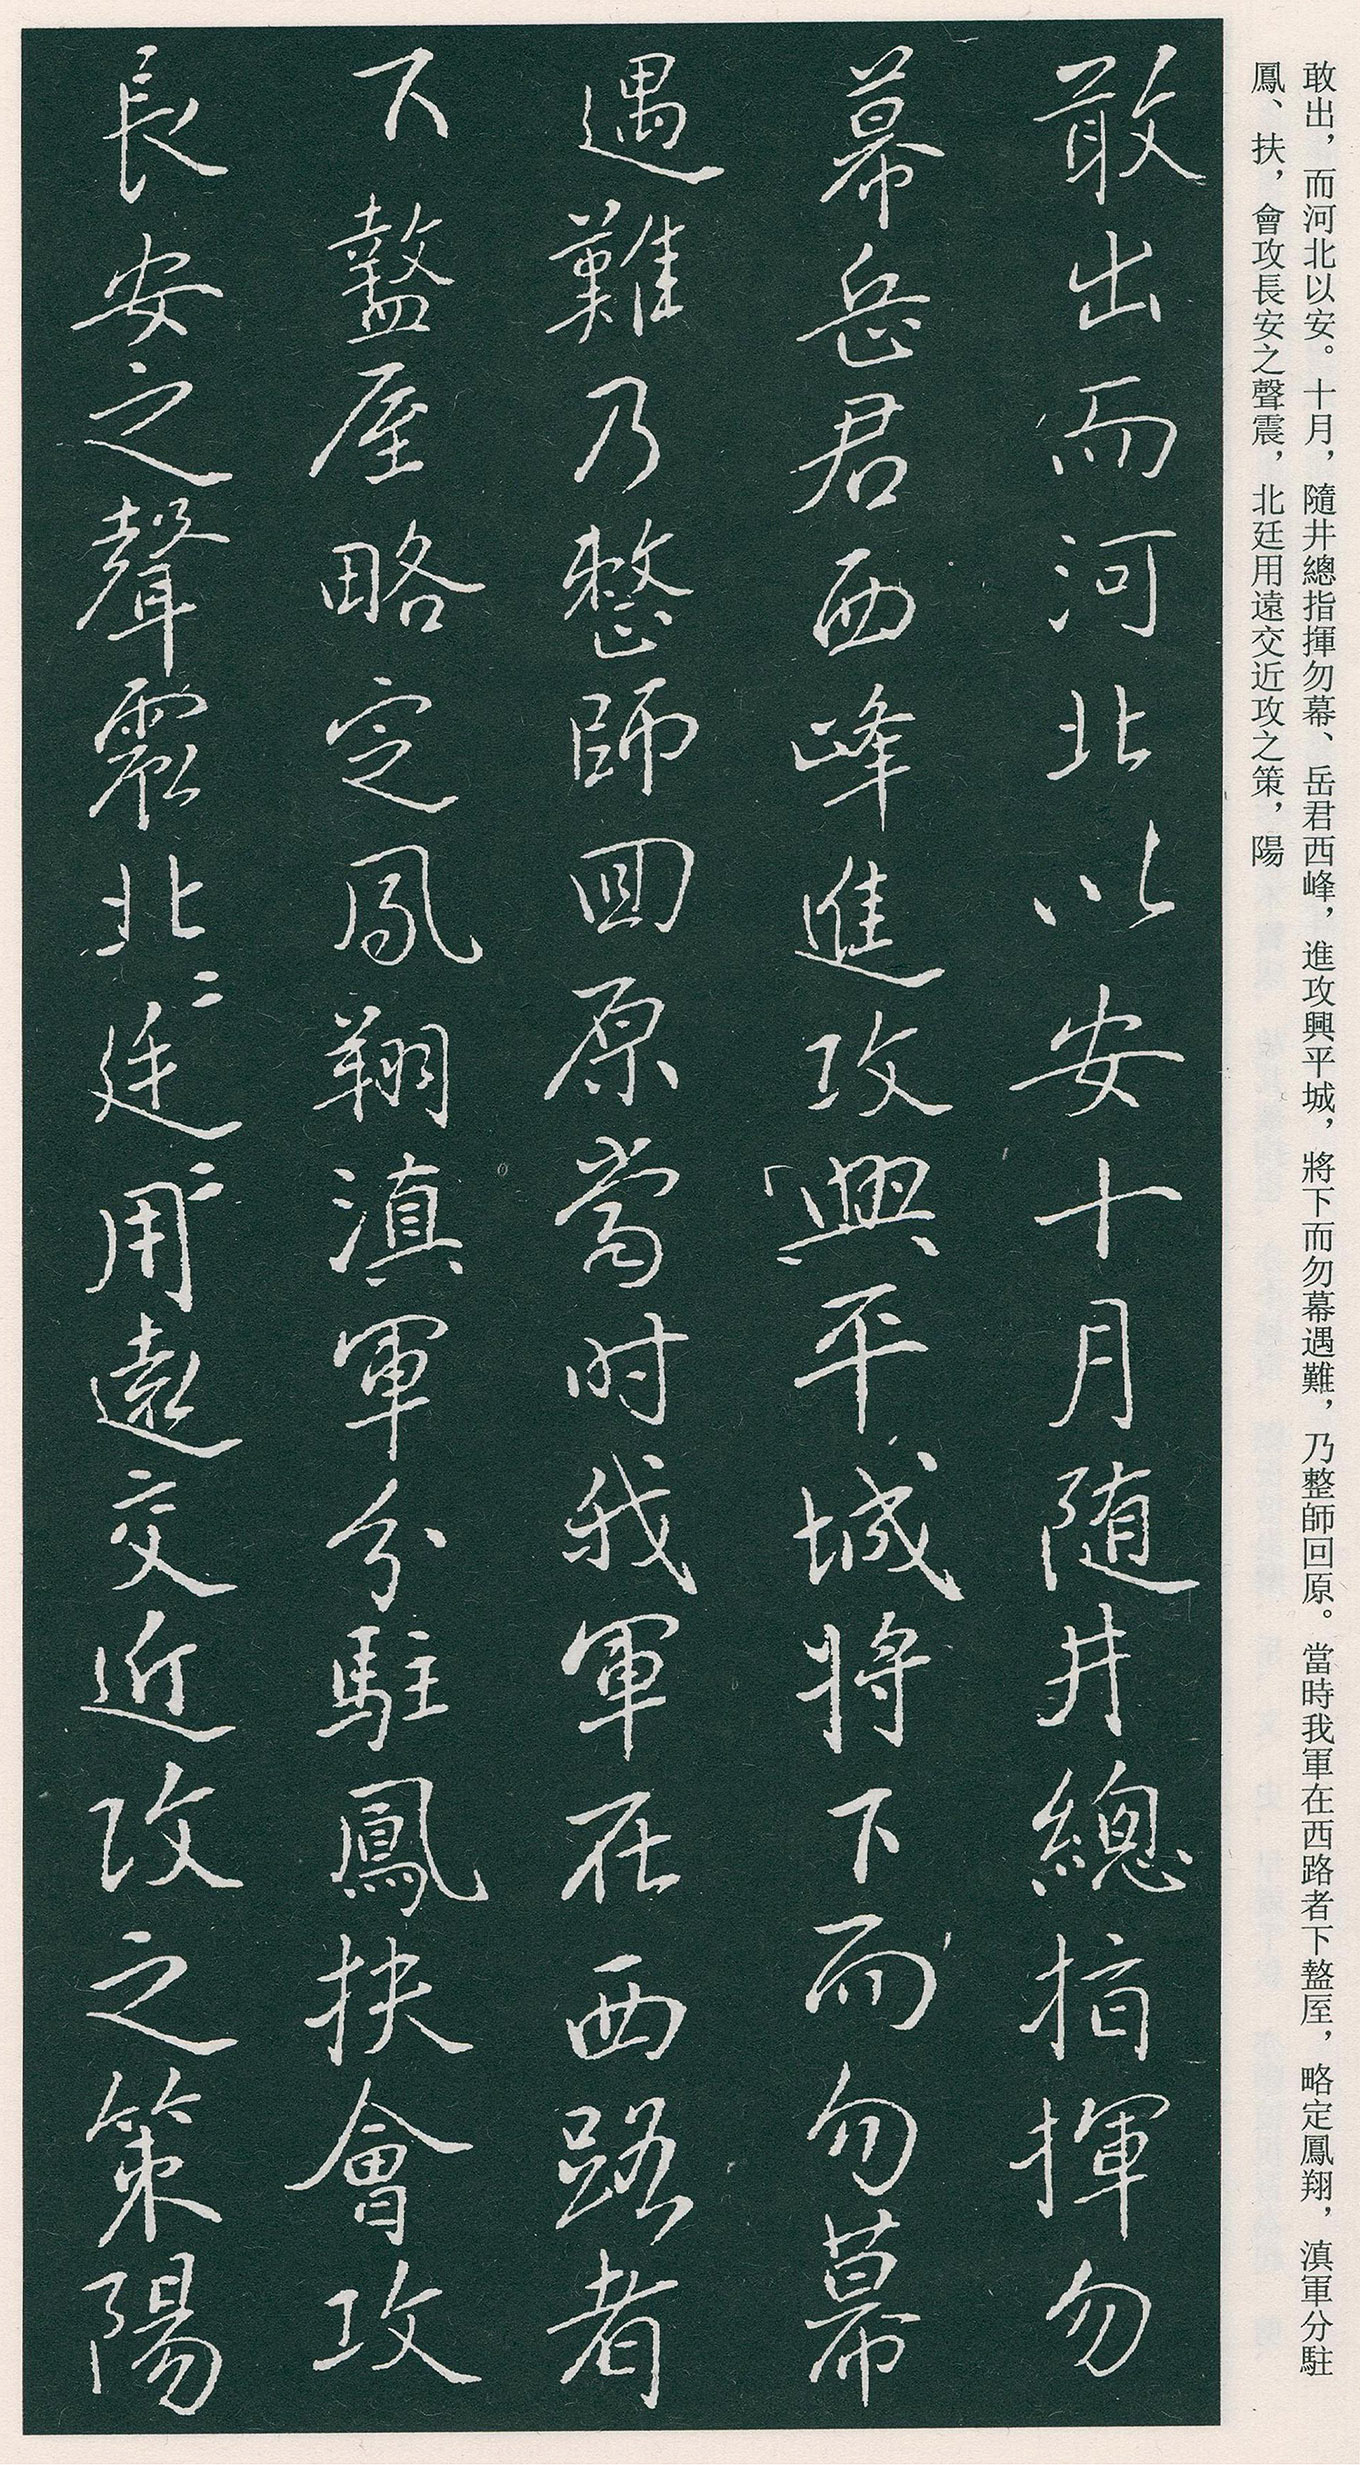 敢出，而河北以安。十月，隨井總指揮勿幕、岳君西峰，進攻興平城，將下而勿幕遇難，乃整師回原。當時我軍在西路者下盩厔，略定鳳翔，滇軍分駐
鳳、扶，會攻長安之聲震，北廷用遠交近攻之策，陽
敢出而河北以安十月随井總指揮勿
幕岳君西峰進攻興平城將下而勿幕
遇難乃整師回原當时我軍在西路者
下盩厔略定鳳翔滇軍分駐鳳扶會攻
長安之聲震北〻廷〻用遠交近攻之策陽